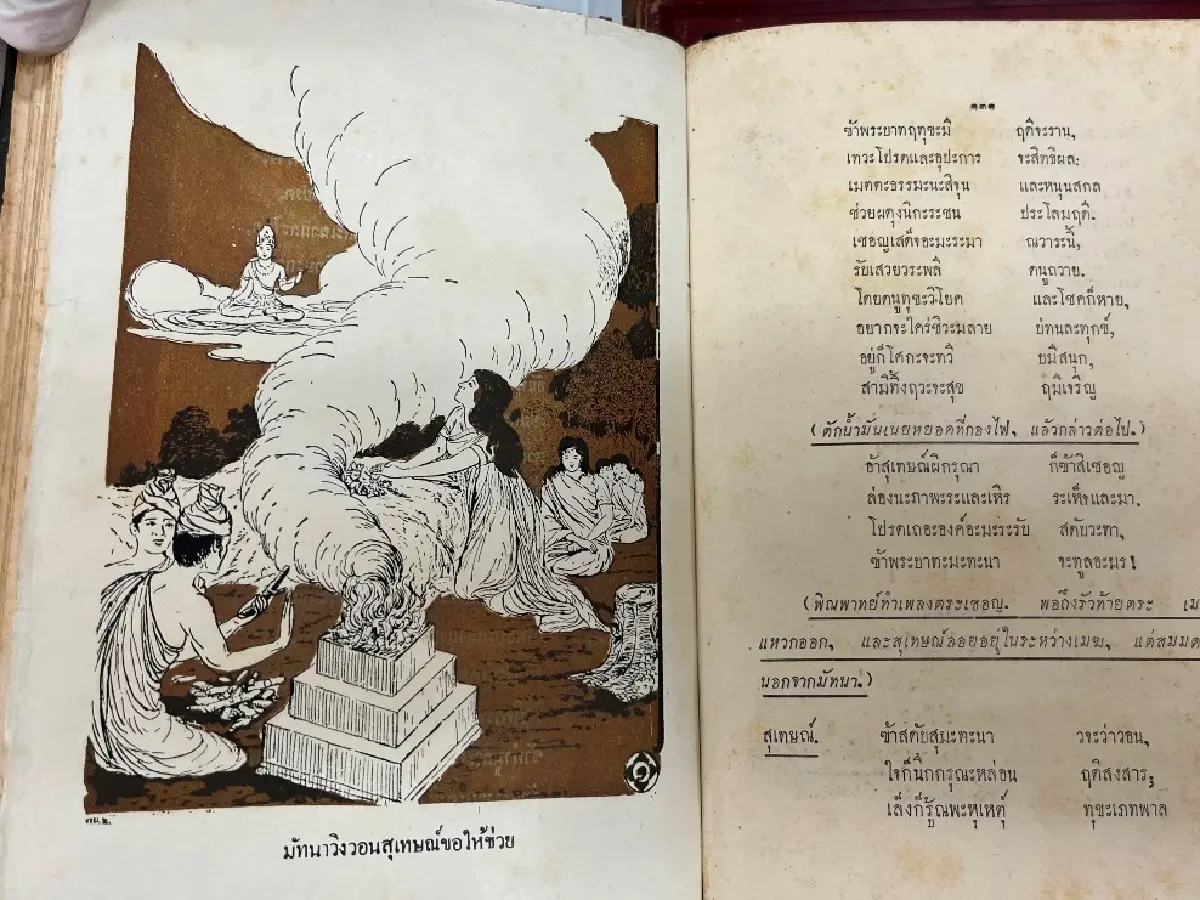 มัทนาวิงวอนสุเทษณ์ขอให้ช่วย
๑๓๑
ข้าพระยาทฤทุขะมิ ฤดิจะราน,
เทวะโปรดและอุปะการ จะสิทธิผละ
เมตตะธรรมะนะสิจุน และหนุนสกล
ช่วยผดุงนิกะระชน ประโลมฤดิ.
เชอญเสด็จอะมะระมา ณวาระนี้,
รับเสวยวระพลี ดนูถวาย.
โดยดนูทุขะวิโยค และโชคก็หาย,
อยากจะใคร่ชิวะมลาย ย่ทนละทุกข์,
อยู่ก็โศกะจะทวี บมีสนุก,
สามิทิ้งฤวะจะสุข ฤมิเจริญ
(ตักน้ำมันเนยหยอดที่กองไฟ, แล้วกล่าวต่อไป.)
อ้าสุเทษณ์ผิกรุณา ก็ข้าสิเชอญ
ล่องนะภาพะระและเหิร ระเห็จและมา.
โปรดเถอะองค์อะมะระรับ สดับวะทา,
ข้าพระยาทะมะทะนา จะทูลอะมร!
(พิณพาทย์ทำเพลงตระเชอญ. พอถึงรัวท้ายตระ เม
แหวกออก, และสุเทษณ์ลอยอยู่ในระหว่างเมฆ, แต่สมมต
นอกจากมัทนา.)
สุเทษณ์. ข้าสดับสุมะทะนา วจะว่าวอน,
ใจก็นึกกรุณะหล่อน ฤดิสงสาร;
เล็งก็รู้ณพะหุเหตุ์ ทุขะเภทพาล